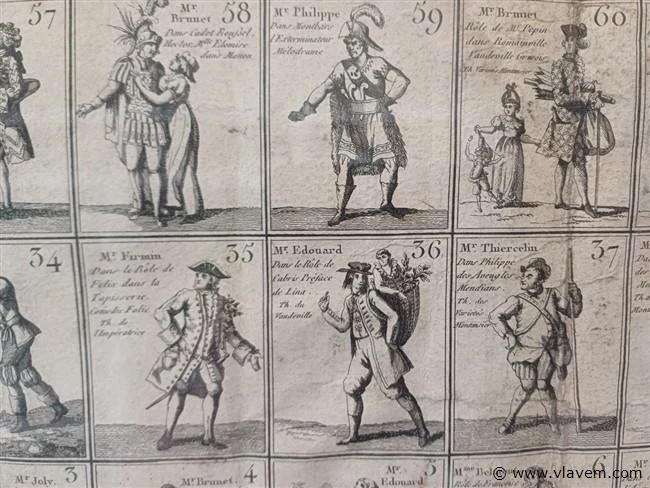 57
Mr Brunet 58
Dans Cadet Roussel,
Hector, Mlle Elomire
dans Manon
Mr Philippe 59
Dans Montbars
l'Exterminateur
Mélodrame
Mr Brunet 60
Rôle de Mr Pepin
dans Romainville
Vaudeville Grivois
Th. Varietés Montansier
34
Mr Firmin 35
Dans le Rôle de
Felix dans la
Tapisserie
Comedie Folie
Th. de
l'Impératrice
Mr Edouard 36
Dans le Rôle de
Cabris Préface
de Lina.
Th. du
Vaudeville
Mr Thiercelin 37
Dans Philippe
des Aveugles
Mendians
Th. des
Varietés
Montansier
Mr Joly. 3
Mr Brunet. 4
Mr Edouard 5
Mme 6
Rôle de François
© www.vlavem.com